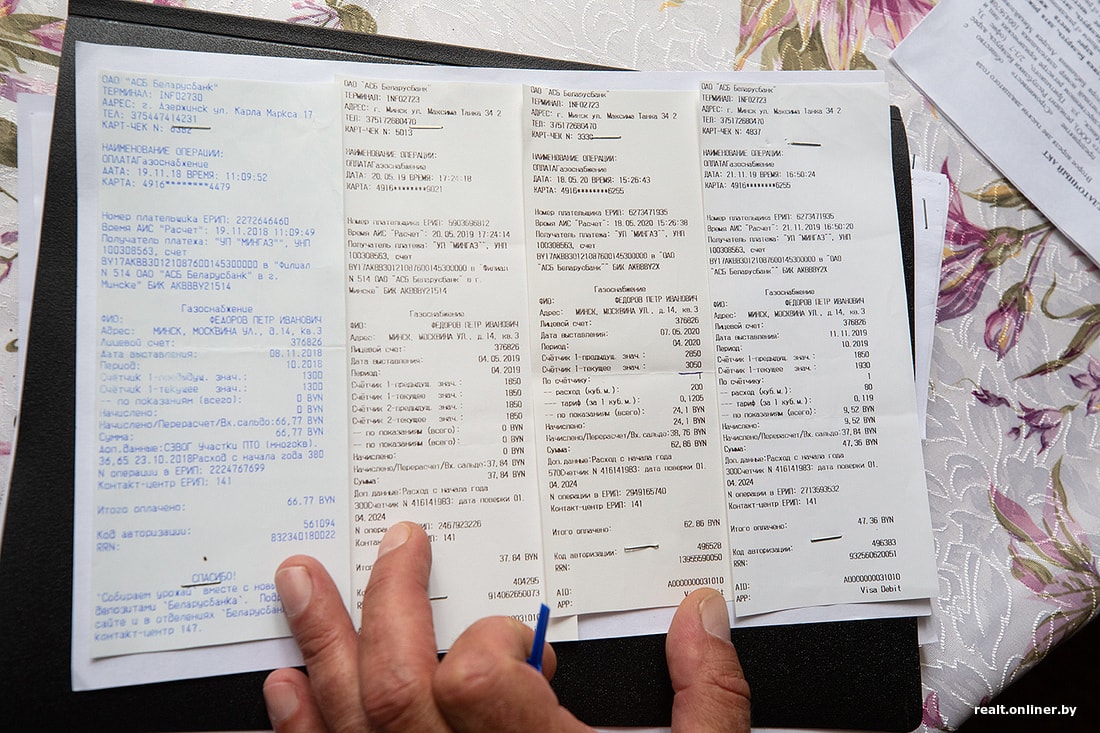 ОАО "АСБ Беларусбанк"
ТЕРМИНАЛ: INF02730
АДРЕС: г. Дзержинск ул. Карла Маркса 17
ТЕЛ: 375447414231
КАРТ-ЧЕК N: 6382
НАИМЕНОВАНИЕ ОПЕРАЦИИ:
ОПЛАТАГазоснабжение
ДАТА: 19.11.18 ВРЕМЯ: 11:09:52
КАРТА: 4916********4479
Номер плательщика ЕРИП: 2272646460
Время АИС "Расчет": 19.11.2018 11:09:49
Получатель платежа: "УП "МИНГАЗ"", УНП
100308563, счет
BY17AKBB30121087600145300000 в "Филиал
N 514 ОАО "АСБ Беларусбанк" в г.
Минске" БИК AKBBBY21514
Газоснабжение
ФИО: ФЕДОРОВ ПЕТР ИВАНОВИЧ
Адрес: МИНСК, МОСКВИНА УЛ., д.14, кв.3
Лицевой счет: 376826
Дата выставления: 08.11.2018
Период: 10.2018
Счётчик 1-предыдущ. знач.: 1300
Счётчик 1-текущее знач.: 1300
-- по показаниям (всего): 0 BYN
Начислено: 0 BYN
Начислено/Перерасчет/Вх.сальдо:66,77 BYN
Сумма: 66,77 BYN
Доп.данные:СЗВОГ Участки ПТО (многокв).
36,65 23.10.2018Расход с начала года 380
N операции в ЕРИП: 2224767699
Контакт-центр ЕРИП: 141
Итого оплачено: 66.77 BYN
Код авторизации: 561094
RRN: 832340180022
СПАСИБО!
"Собираем урожай вместе с
депозитами "Беларусбанка".
сайте и в отделениях
контакт-центр 147.
ОАО "АСБ Беларусбанк"
ТЕРМИНАЛ: INF02723
АДРЕС: г. Минск ул. Максима Танка 34 2
ТЕЛ: 375172680470
КАРТ-ЧЕК N: 5013
НАИМЕНОВАНИЕ ОПЕРАЦИИ:
ОПЛАТАГазоснабжение
ДАТА: 20.05.19 ВРЕМЯ: 17:24:18
КАРТА: 4916********9021
Номер плательщика ЕРИП: 5903696812
Время АИС "Расчет": 20.05.2019 17:24:14
Получатель платежа: "УП "МИНГАЗ"", УНП
100308563, счет
BY17AKBB30121087600145300000 в "Филиал
N 514 ОАО "АСБ Беларусбанк" в г.
Минске" БИК AKBBBY21514
Газоснабжение
ФИО: ФЕДОРОВ ПЕТР ИВАНОВИЧ
Адрес: МИНСК, МОСКВИНА УЛ., д.14, кв.3
Лицевой счет: 376826
Дата выставления: 04.05.2019
Период: 04.2019
Счётчик 1-предыдущ. знач.: 1850
Счётчик 1-текущее знач.: 1850
Счётчик 2-предыдущ. знач.: 1850
Счётчик 2-текущее знач.: 1850
-- по показаниям (всего): 0 BYN
Начислено: 0 BYN
Начислено/Перерасчет/Вх.сальдо:37,84 BYN
Сумма: 37,84 BYN
Доп.данные:Расход с начала года
300Счетчик N 416141983: дата поверки 01.
04.2024
2467923226
141
37.84 BYN
404295
914062650073
ОАО "АСБ Беларусбанк"
ТЕРМИНАЛ: INF02723
АДРЕС: г. Минск ул. Максима Танка 34 2
ТЕЛ: 375172680470
КАРТ-ЧЕК N:
НАИМЕНОВАНИЕ ОПЕРАЦИИ:
ОПЛАТАГазоснабжение
ДАТА: 18.05.20 ВРЕМЯ: 15:26:43
КАРТА: 4916********6255
Номер плательщика ЕРИП: 6273471935
Время АИС "Расчет": 18.05.2020 15:26:38
Получатель платежа: "УП "МИНГАЗ"", УНП
100308563, счет
BY17AKBB30121087600145300000 в "ОАО
"АСБ Беларусбанк"" БИК AKBBBY2X
Газоснабжение
ФИО: ФЕДОРОВ ПЕТР ИВАНОВИЧ
Адрес: МИНСК, МОСКВИНА УЛ., д.14, кв.3
Лицевой счет: 376826
Дата выставления: 07.05.2020
Период: 04.2020
Счётчик 1-предыдущ. знач.: 2850
Счётчик 1-текущее знач.: 3050
По счётчику:
-- расход (куб.м.): 200
--- тариф (за 1 куб.м.): 0,1205
-- по показаниям (всего): 24,1 BYN
Начислено: 24,1 BYN
Начислено/Перерасчет/Вх.сальдо:38,76 BYN
Сумма: 62,86 BYN
Доп.данные:Расход с начала года
570Счетчик N 416141983: дата поверки 01.
04.2024
N операции в ЕРИП: 2949165740
Контакт-центр ЕРИП: 141
Итого оплачено: 62.86 BYN
Код авторизации: 496528
RRN: 13955590050
AID: A0000000031010
APP:
ОАО "АСБ Беларусбанк"
ТЕРМИНАЛ: INF02723
АДРЕС: г. Минск ул. Максима Танка 34 2
ТЕЛ: 375172680470
КАРТ-ЧЕК N: 4837
НАИМЕНОВАНИЕ ОПЕРАЦИИ:
ОПЛАТАГазоснабжение
ДАТА: 21.11.19 ВРЕМЯ: 16:50:24
КАРТА: 4916********6255
Номер плательщика ЕРИП: 6273471935
Время АИС "Расчет": 21.11.2019 16:50:20
Получатель платежа: "УП "МИНГАЗ"", УНП
100308563, счет
BY17AKBB30121087600145300000 в "ОАО
"АСБ Беларусбанк"" БИК AKBBBY2X
Газоснабжение
ФИО: ФЕДОРОВ ПЕТР ИВАНОВИЧ
Адрес: МИНСК, МОСКВИНА УЛ., д.14, кв.3
Лицевой счет: 376826
Дата выставления: 11.11.2019
Период: 10.2019
Счётчик 1-предыдущ. знач.: 1850
Счётчик 1-текущее знач.: 1930
По счётчику: 1
-- расход (куб.м.): 80
--- тариф (за 1 куб.м.): 0,119
-- по показаниям (всего): 9,52 BYN
Начислено: 9,52 BYN
Начислено/Перерасчет/Вх.сальдо:37,84 BYN
Сумма: 47,36 BYN
Доп.данные:Расход с начала года
300Счетчик N 416141983: дата поверки 01.
04.2024
N операции в ЕРИП: 2713593532
Контакт-центр ЕРИП: 141
Итого оплачено: 47.36 BYN
Код авторизации: 496383
RRN: 932560620051
AID: A0000000031010
APP: Visa Debit
realt.onliner.by